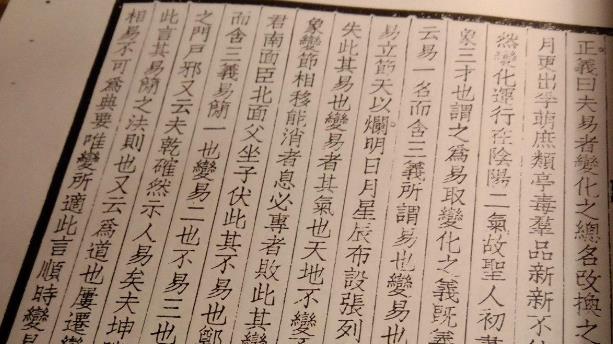 正義曰夫易者變化之總名改換之
月更出孚萌庶類亭毒羣品新新不
然變化運行在陰陽二氣故聖人初畫
象三才也謂之為易取變化之義既義
云易一名而含三義所謂易也變易也
易立節天以爛明日月星辰布設張列
失此其易也變易者其氣也天地不變
象變節相移能消者息必專者敗此其變
君南面臣北面父坐子伏此其不易也鄭
而含三義易簡一也變易二也不易三也
之門戶邪又云夫乾確然示人易矣夫坤
此言其易簡之法則也又云為道也屢遷
相易不可為典要唯變所適此言順時變易